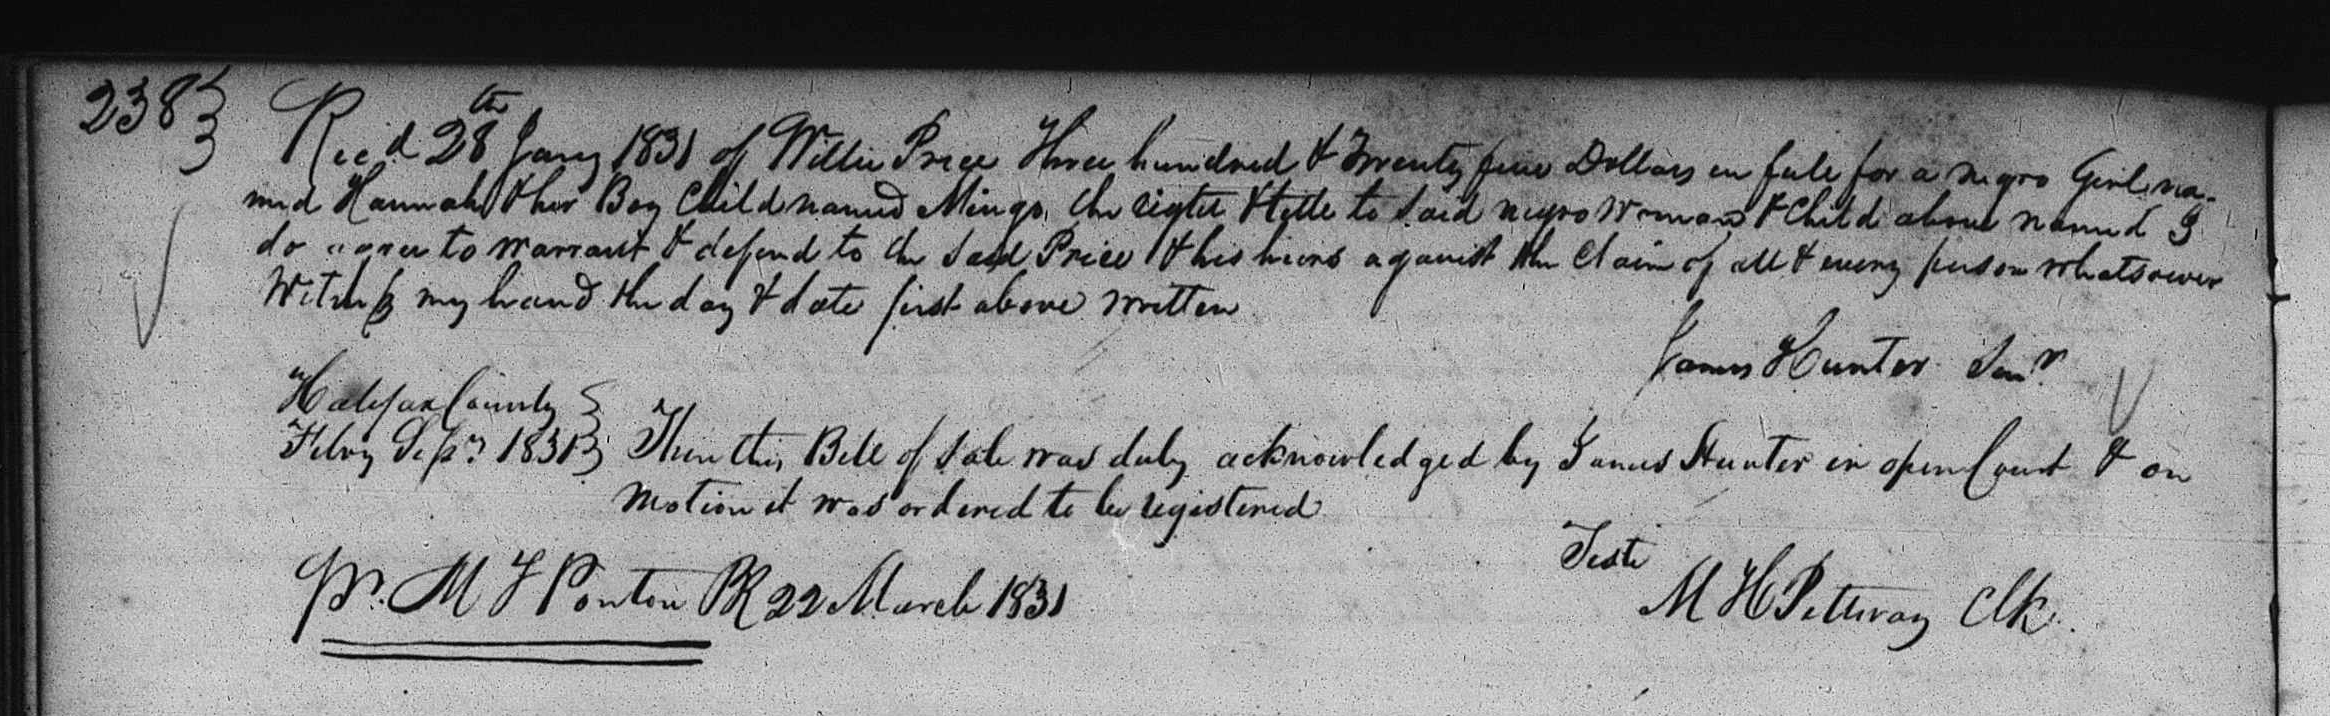 238 Recd 28th Jany 1831 of Willie Price Three hundred & Twenty five Dollars in full for a negro Girl na-
med Hannah & her Boy Child named Mingo, the right & title to said negro Woman & Child above named I
do agree to warrant & defend to the said Price & his heirs against the Claim of all & every person whatsoever
Witness my hand the day & date first above written
James Hunter Senr
Halifax County
Febry Sesn 1831 Then this Bill of Sale was duly acknowledged by James Hunter in open Court & on
motion it was ordered to be registered
Teste
Pr. M F Ponton PR 22 March 1831
M H Pettway Clk.